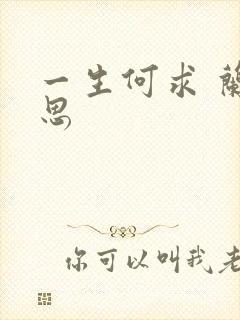 一生何求 蘭
思
你可以叫我老